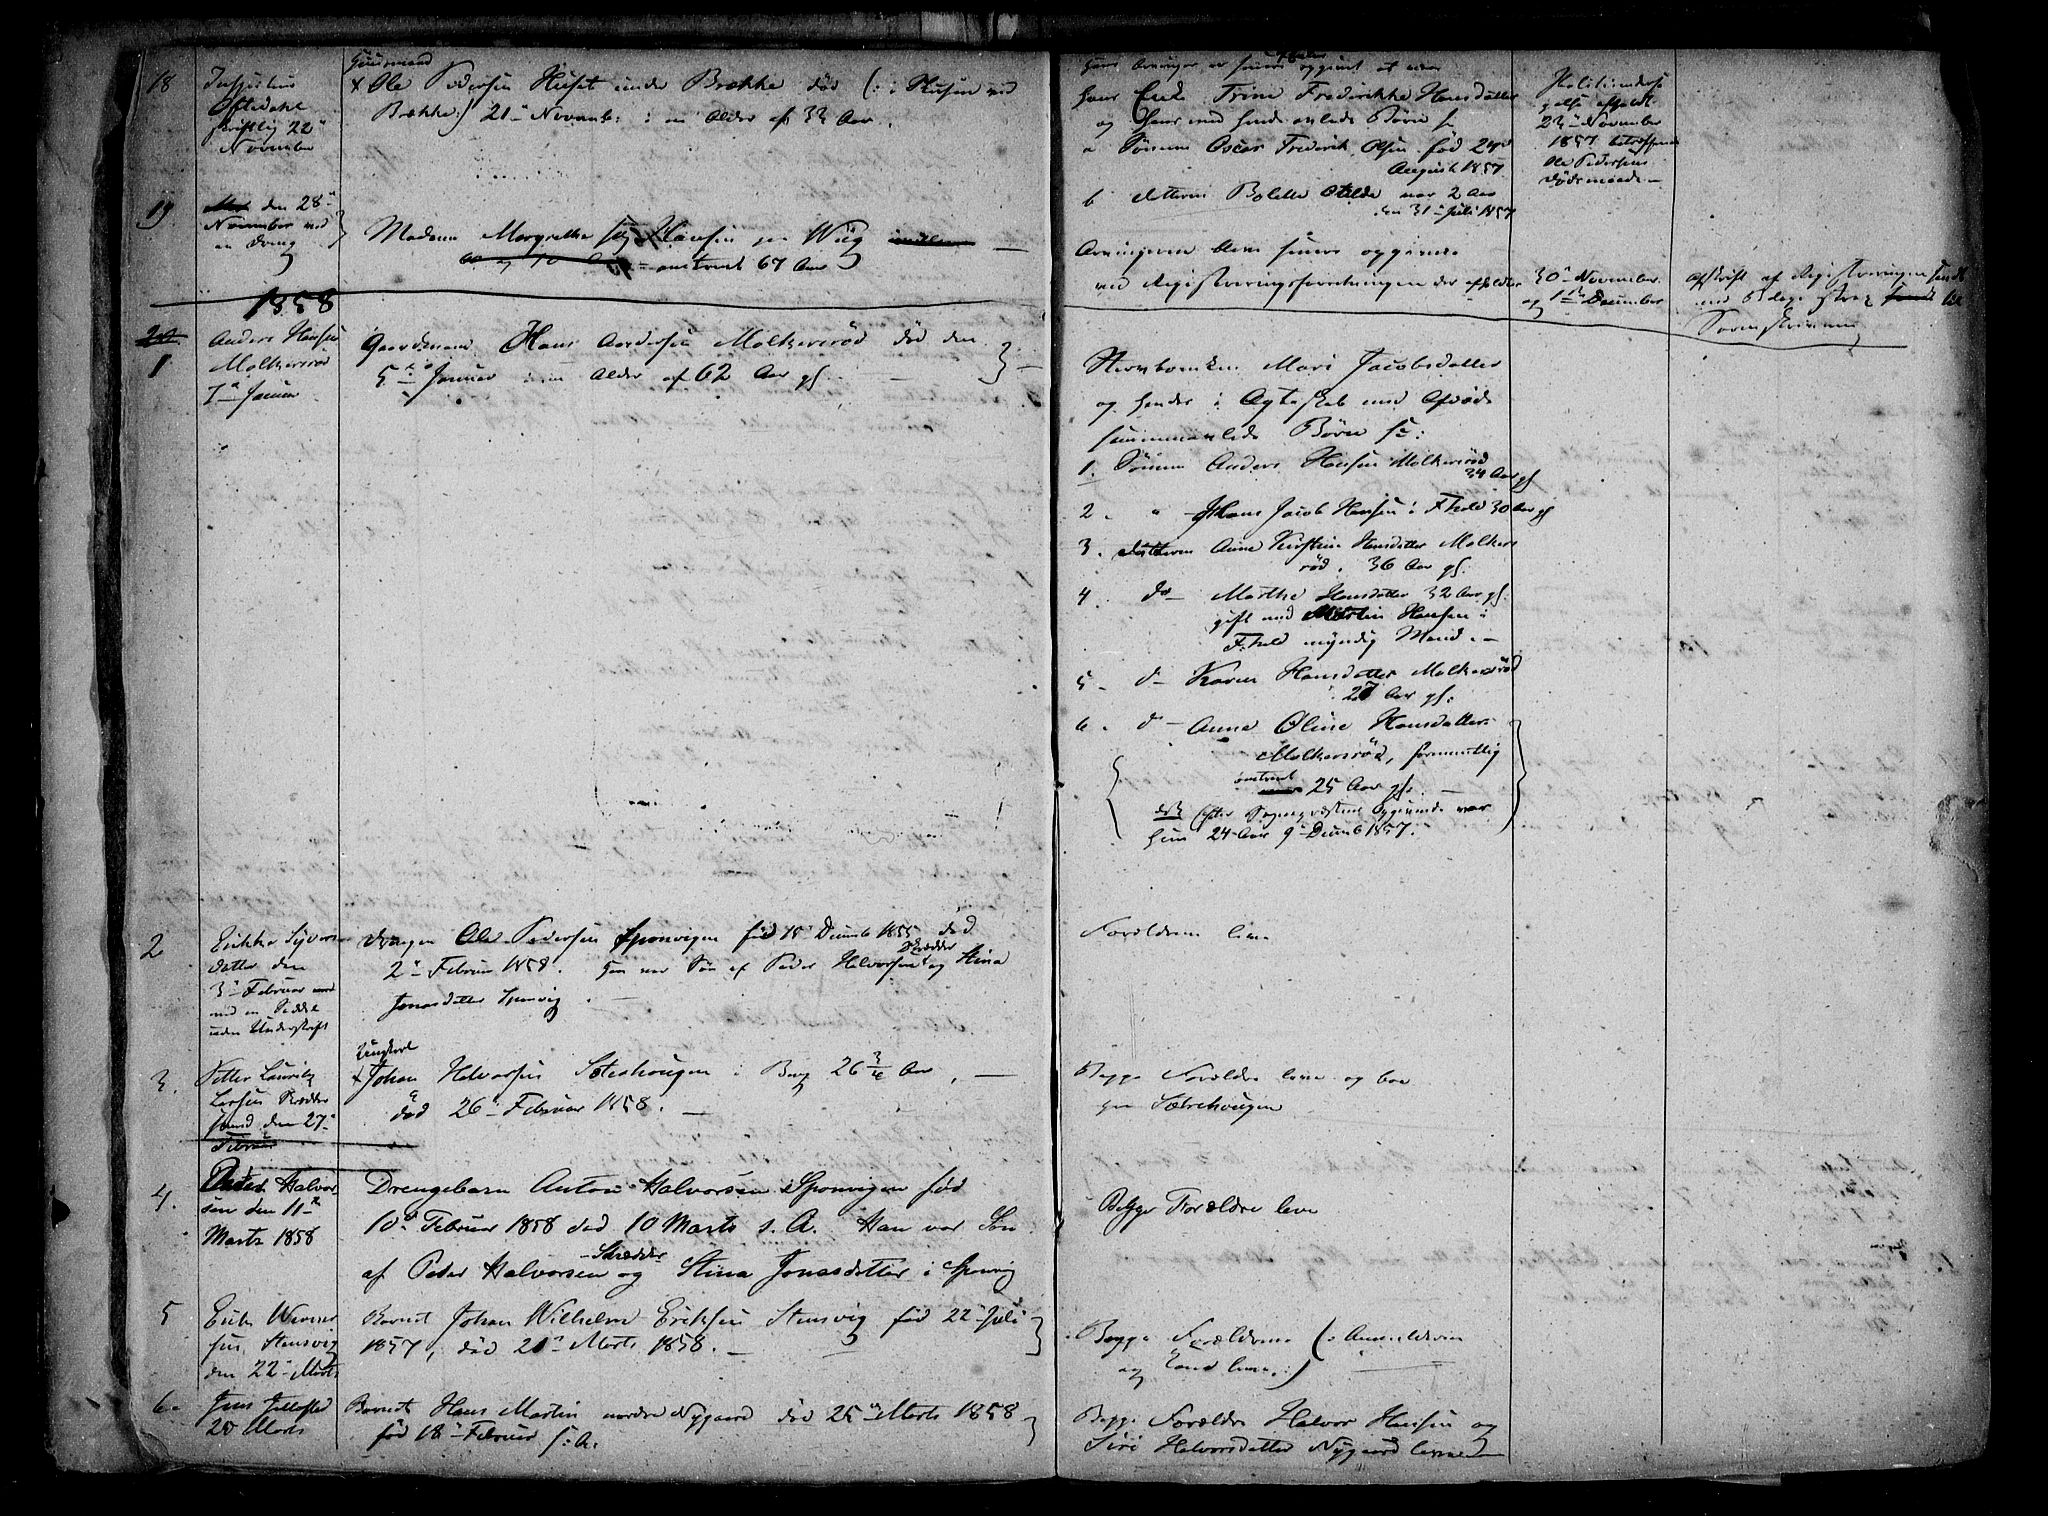 18
Oftedahl
skriftlig 22
November
Huusmand
Ole Pedersen Huset under Brække død (: i Husen ved
Brække:) 21 Novemb: i en Alder af 33 Aar.
hans Arvinger er senere opgivet at være
hans Enke Trine Frederikke Hansdatter
og hans med hende avlede Børn
a Sønnen Oscar Frederik Olsen født 24
August 1857
b datteren Bolette Otilde var 2 Aar
den 31 Juli 1857
23 November
1857 betreffende
Ole Pedersens
Dødsmaade
19
den 28
November ved
en dreng
Madam Margrethe Hansen Wiig
omtrent 67 Aar
Arvingerne blev senere opgivne
ved Registreringsforretningen der afholdtes
30 November
og 1 December
Afskrift af Registreringen sendt
Sorenskriveren
1858
1.
Anders Hansen
Molkersrød
7 Januar
Gaardmand Hans Andersen Molkersrød død den
5 Januar i en Alder af 62 Aar gl.
Mari Jacobsdatter
og hendes i Ægteskab med Afdøde
sammenavlede Børn
1. Sønnen Anders Hansen Molkersrød
34 Aar gl
2. " Hans Jacob Hansen i Fhald 30 Aar gl
3. datteren Anne Kirstine Hansdatter Molkers
rød. 36 Aar gl.
4. do Marthe Hansdatter 32 Aar gl.
gift med Martin Hansen i
F.hald myndig Mand.
5. d Karen Hansdatter Molkersrød
27 Aar gl.
6. d Anne Oline Hansdatter
Molkersrød, formentlig
omtrent
25 Aar gl.
efter Opgivende var
hun 24 Aar 9 Decemb 1857.
2
Erikka Syvers
datter den
3 Februar
med en Seddel
uden Underskrift
drengen Ole Pedersen Sponvigen født 18 Decemb 1855 død
2 Februar 1858. han var Søn af Peder Halvorsen Skrædder og Stina
Jonasdatter Sponvig.
Forældrene leve
3.
Petter Lauritz
Larsen Skrædder
den 27
Februar
Ungkarl
Johan Halvorsen Sætrehougen i Berg 26 3/4 Aar,
død 26 Februar 1858.
Begge Forældre leve og boe
paa Sætrehougen
4.
Peder Halvor
sen den 11
Marts 1858
Drengebarn Anton Halvorsen Sponvigen født
10 Februar 1858 død 10 Marts s. A. Han var Søn
af Peder Halvorsen Skrædder og Stina Jonasdatter i Sponvig
Begge Forældre leve
5
Erik Werner
sen Stensvig
den 22 Marts
Barnet Johan Wilhelm Eriksen Stensvig født 22 Juli
1857, død 21 Marts 1858.
Begge Forældrene (: Anmelderen
og Kone leve :)
6.
Jens Jellestad
20 Marts
Barnet Hans Martin nordre Nygaard død 25 Marts 1858
født 18 Februar s. A.
Begge Forældre Halvor Hansen og
Siri Halvorsdatter Nygaard leve